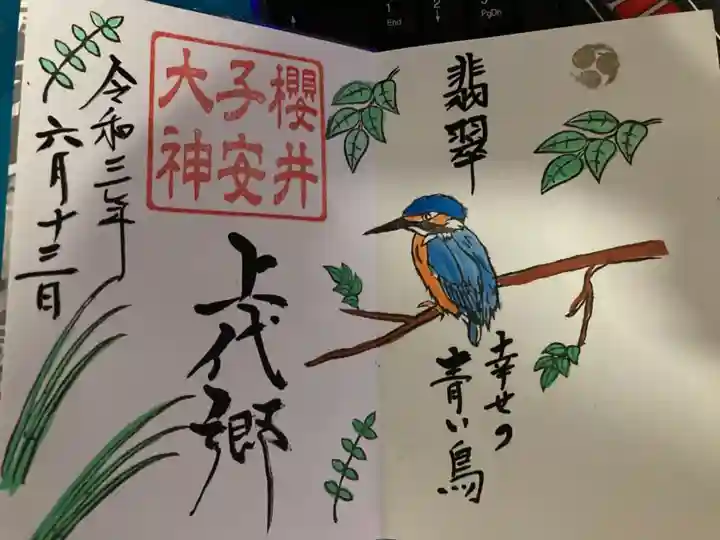 翡翠
幸せの
青い鳥
櫻井
子安
大神
上代郷
令和三年
六月十三日
1
End
2
PgDn